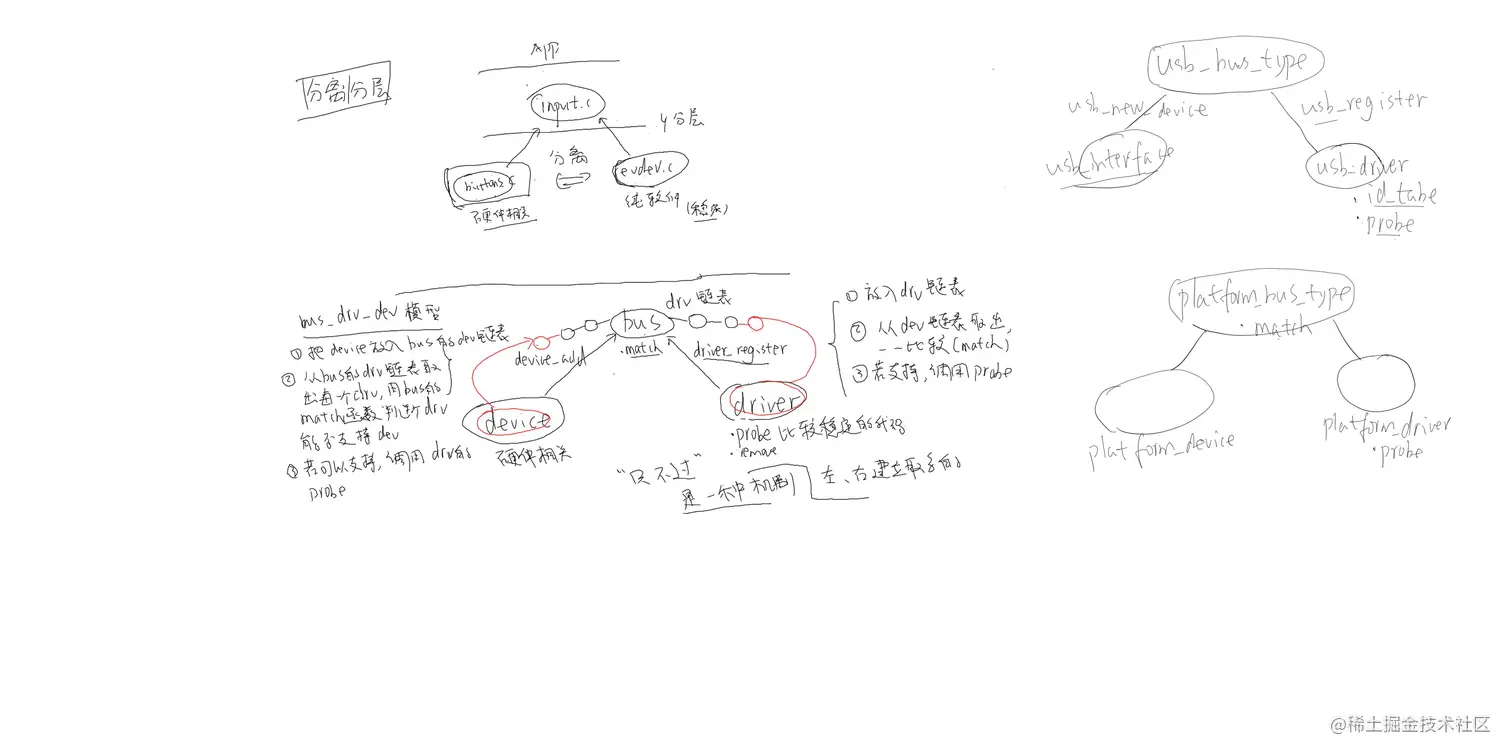 分离分层
APP
input.c
分层
分离
buttons.c
evdev.c
硬件相关
纯软件
usb_bus_type
usb_new_device
usb_register
usb_interface
usb_driver
· id_tabe
· probe
bus_drv_dev 模型
① 把 device 放入 bus的dev链表
② 从bus的drv链表取
出每个drv,用bus的
match函数判断drv
能否支持dev
③ 若可以支持,调用drv的
probe
device_add
bus
.match
drv链表
driver_register
device
硬件相关
driver
·probe 比较稳定的代码
·remove
① 放入drv链表
② 从dev链表取出,
一一比较(match)
③ 若支持,调用probe
"只不过"
是一种机制
左、右建立联系的
platform_bus_type
· match
platform_device
platform_driver
· probe
@稀土掘金技术社区